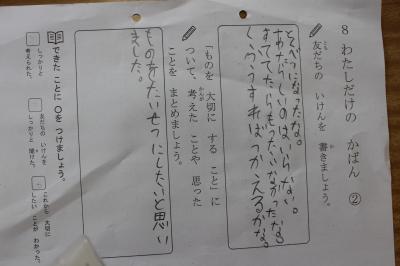 8 わたしだけの かばん ②
友だちの いけんを 書きましょう。
とくべつになったな。
あたらしいのはいらない。
すててたらもったいなかったな。
くふうすればつかえるかな。
「ものを 大切に する こと」に
ついて、考えた ことや 思った
ことを まとめましょう。
ものをたいせつにしたいと思い
ました。
できた ことに ○を つけましょう。
しっかりと
考えられた。
友だちの いけんを
しっかりと 聞けた。
これから 大切に
したい ことが わかった。